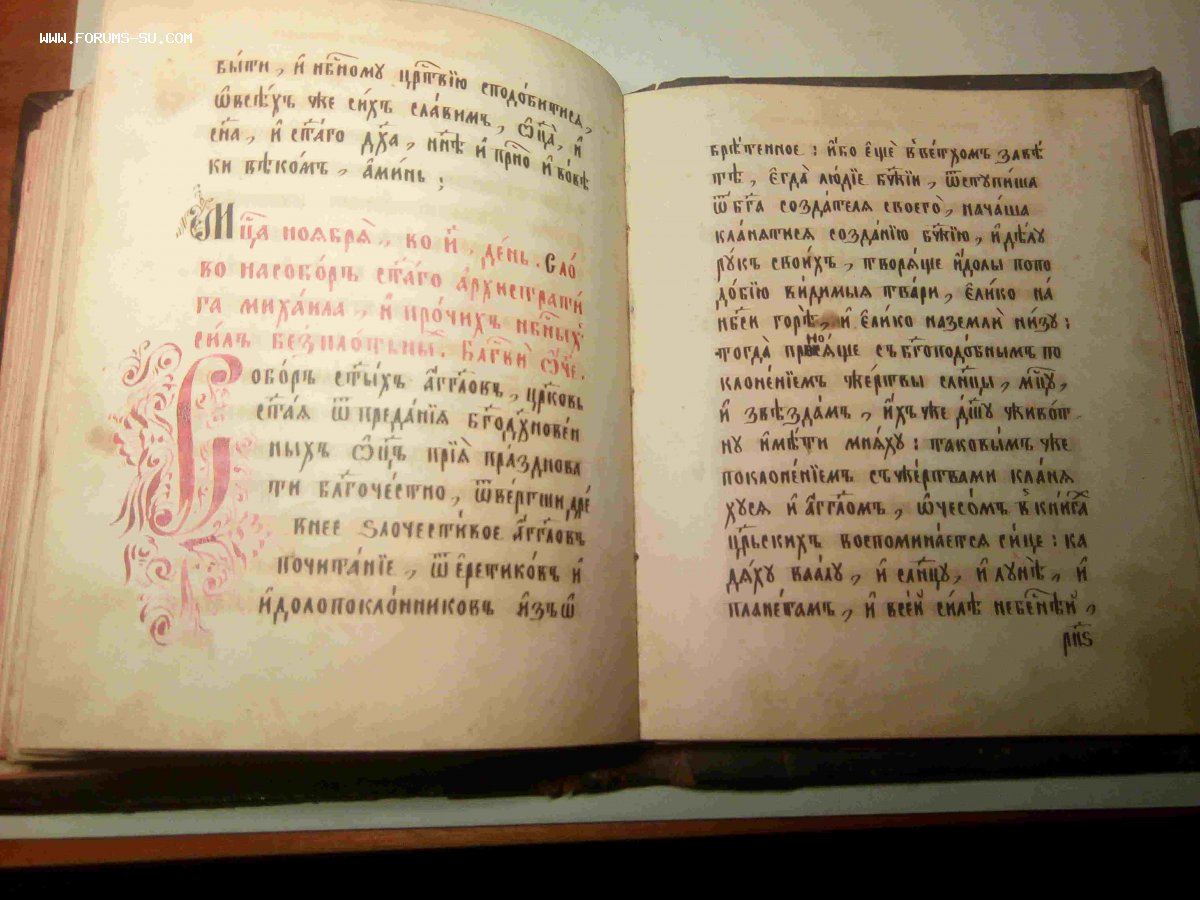 WWW.FORUMS-SU.COM
бы́ти, и҆ нб҃ному црⷭ҇твїю сподо́битися,
ѡ҆ всѣ́хъ же си́хъ сла́вимъ, ѻ҆ц҃а̀, и҆
сн҃а, и҆ ст҃а́го дх҃а, нн҃ѣ и҆ прⷭ҇но и҆ во вѣ
ки вѣко́мъ, а҆ми́нь;
Мцⷭ҇а ноября̀, ко и҃, де́нь. Сло́
во на собо́ръ ст҃а́го а҆рхистрати́
га михаи́ла, и҆ про́чихъ нбⷭ҇ныхъ
си́лъ безпло́тны. Бл҃гви ѻ҆́ч҃е.
Собо́ръ ст҃ы́хъ а҆́гг҃ловъ, цр҃ковь
ст҃а́я ѿ преда́нїя бг҃одх҃нове́н
ныхъ ѻ҆ц҃ъ прїѧ̀ пра́зднова
ти бл҃гоче́стно, ѿве́ргши дре́
внее ѕлочести́вое а҆́гг҃ловъ
почита́нїе, ѿ є҆ретико́въ и҆
и҆долопокло́нниковъ и҆зъѡ
брѣ́тенное: и҆́бо є҆щѐ в ве́тхомъ завѣ́
тѣ, є҆гда̀ лю́дїе бж҃їи, ѿступи́ша
ѿ бг҃а созда́теля своего̀, нача́ша
кла́нятися созда́нїю бж҃їю, и҆ дѣ́лу
ру́къ свои́хъ, творя́ще и҆́долы по по
до́бїю ви́димыя тва́ри, є҆ли́ко на́
нб҃си горѣ̀, и҆ є҆ли́ко на землѝ ни́зу:
тогда̀ приносяще съ бг҃оподо́бнымъ по
клоне́нїемъ же́ртвы слн҃цы, мцⷭ҇у,
и҆ звѣзда́мъ, и҆́хъ же дш҃у живо́т
ну и҆мѣ́ти мня́ху: таковы́мъ же
поклоне́нїемъ съ же́ртвами кла́ня
хуся и҆ а҆́гг҃ломъ, ѡ҆ чесо́мъ в кни́гⷯа
црⷭ҇ьскихъ воспомина́ется си́це: ка
дя́ху ваа́лу, и҆ сл҃нцу, и҆ лунѣ̀, и҆
плане́тамъ, и҆ все́й си́лѣ небе́снѣй,
рн҃ѕ